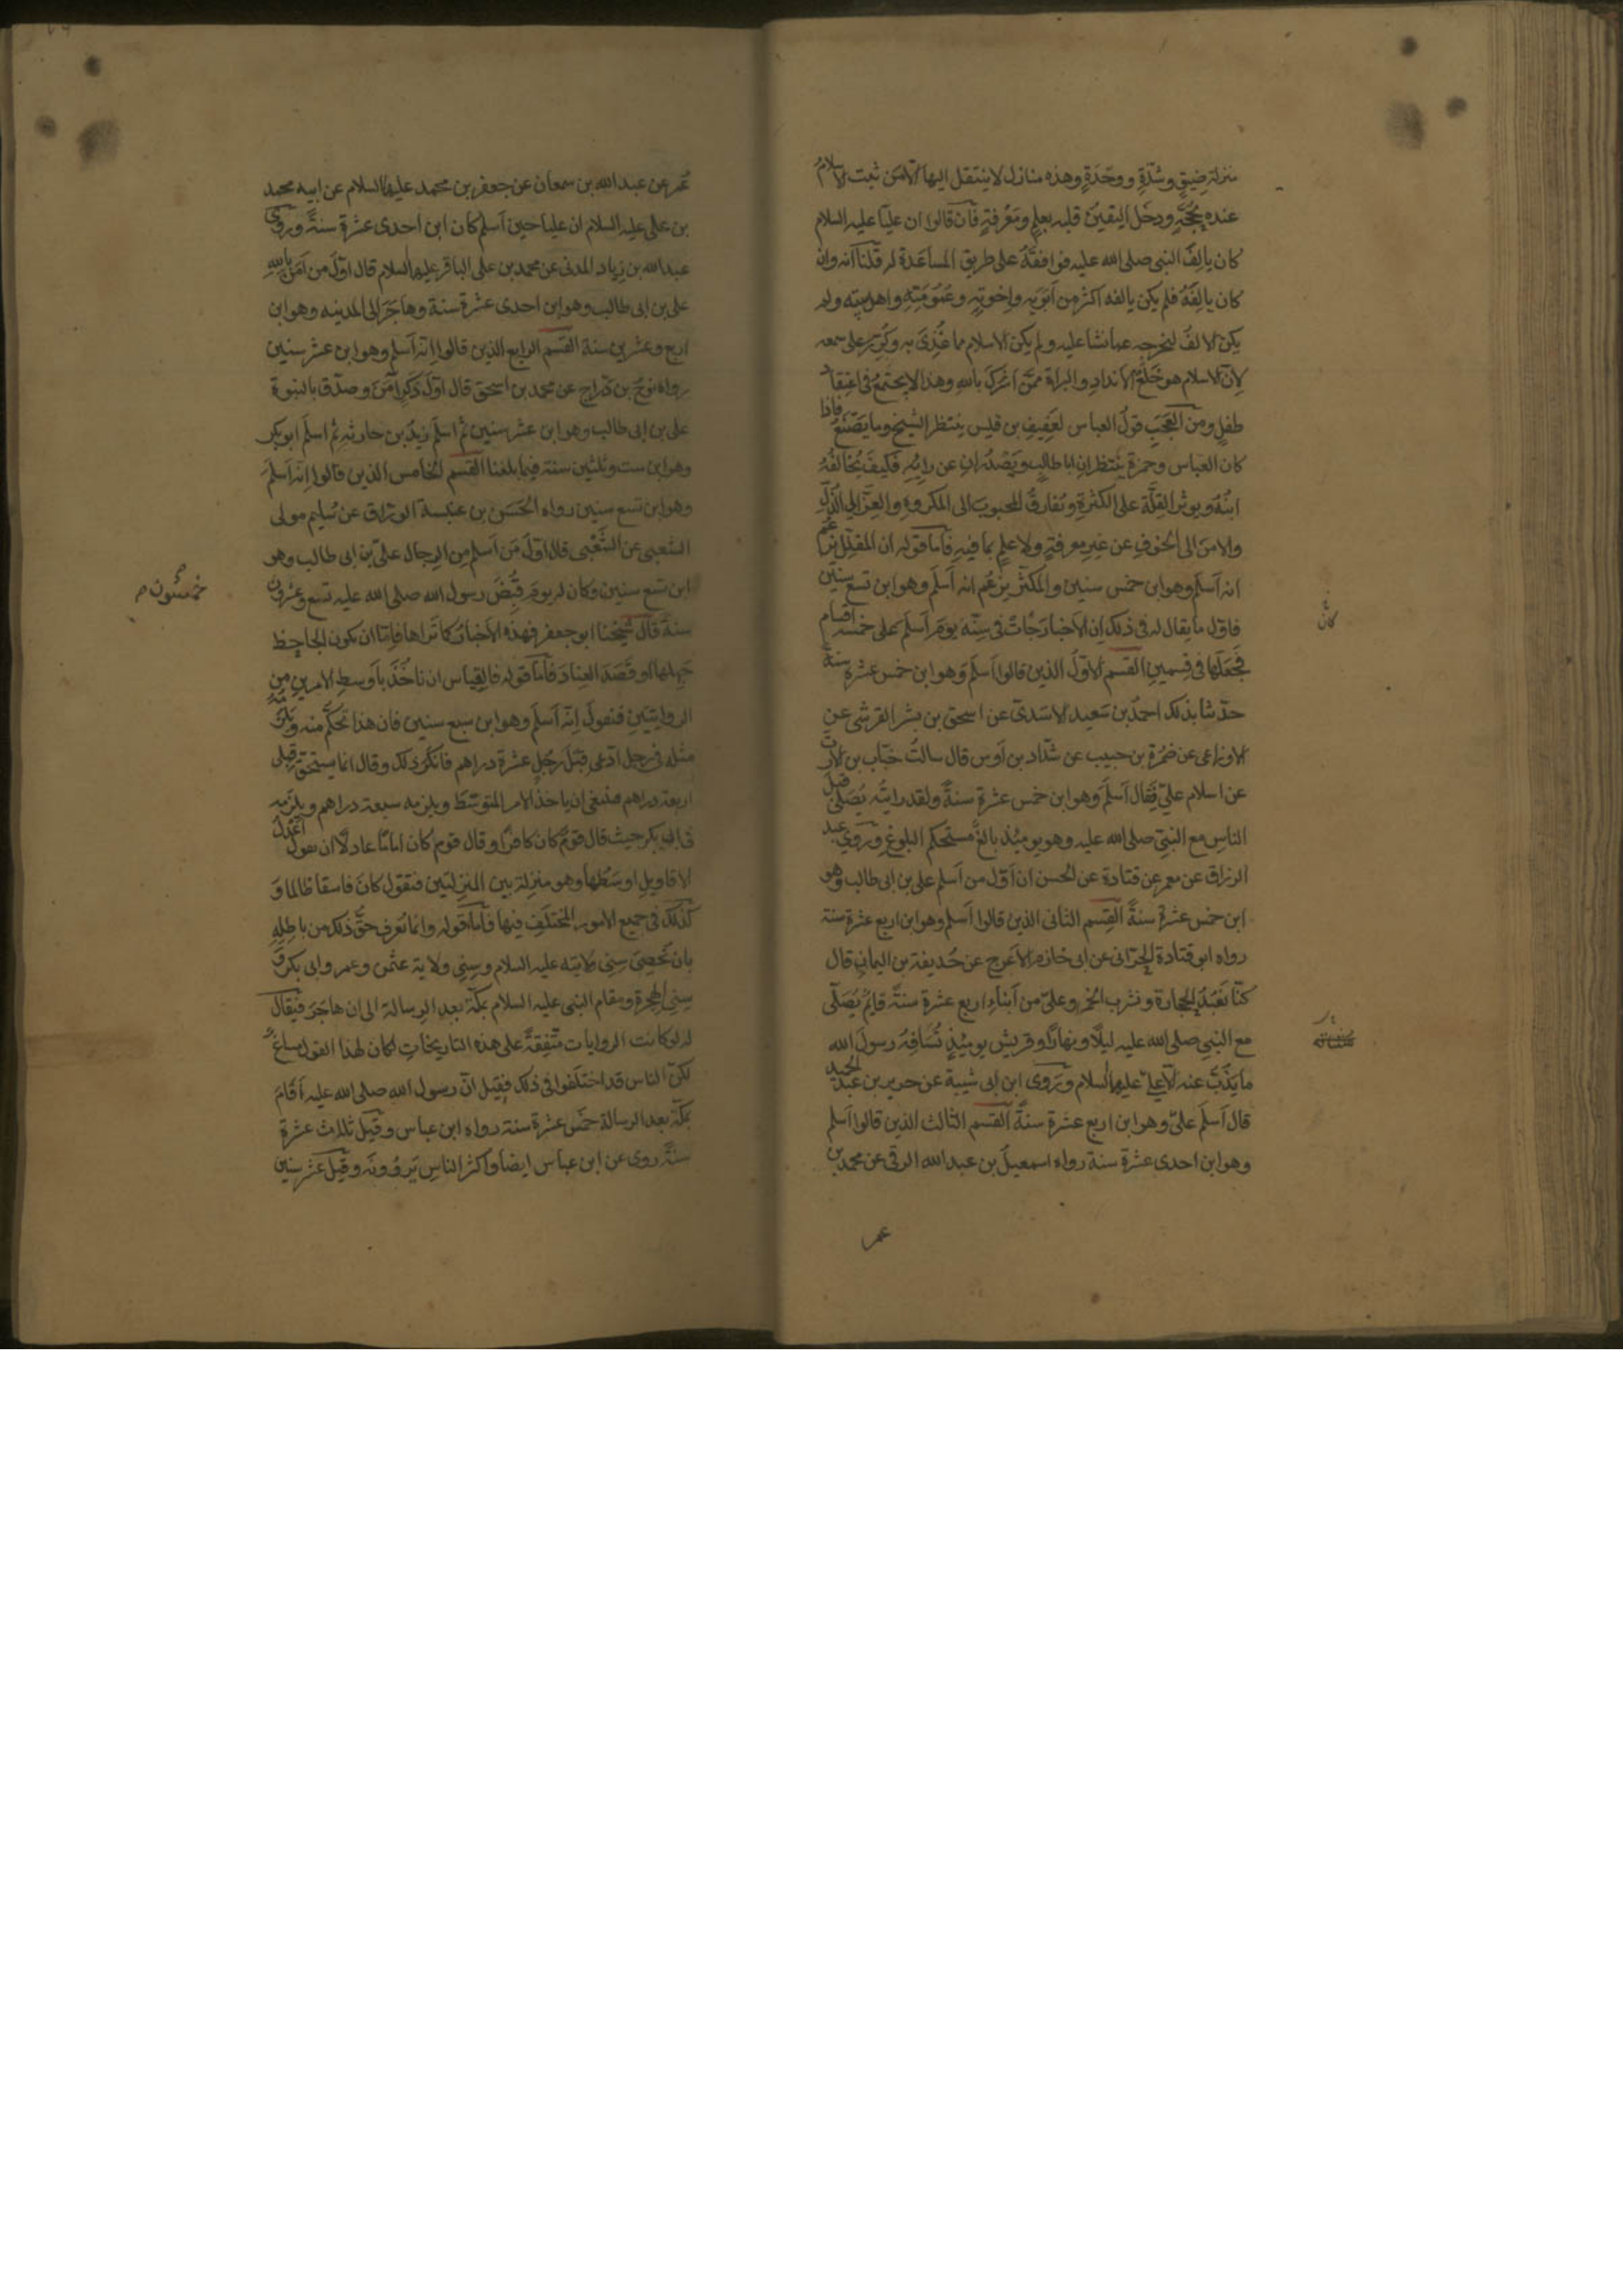 منزلة ضيق وشدّةٍ ووحدَةٍ وهذه منازل لا ينتقل اليها الا من ثبت الاسلامُ
عنده بحُجّةٍ ودخل اليقينُ قلبه بعلمٍ ومَعْرفةٍ فان قالوا ان عليّا عليه السلام
كان يالِفُ النبى صلى الله عليه فوافقَهُ على طريق المساعَدة له قلنا انه وان
كان يالفَهُ فلم يكن يالفه اكثر من ابَوَيه واِخوتِهٖ وعُمُومَتِهٖ واهل بيته ولم
يكن الالفُ ليخرجه عما نشا عليه ولم يكن الاسلام مما غُذِىَ به وكُرِّر على سمعه
لانّ الاسلام هو خَلْعُ الانداد والبراة ممّن اشرك بالله وهذا لا يجتمعُ فى اعتقاد
طفلٍ ومن العَجَبِ قولُ العباس لعَفيفِ بن قيس ينتظر الشيخ وما يَصْنَعُ فاذا
كان العباس وحمزة يَنتظران ابا طالبٍ ويَصْدُران عن رايِهٖ فكيفَ يُخالفُهُ
ابنُهُ ويوثر القلّةَ على الكثرةِ ويُفارقُ المحبوبَ الى المكروهِ والعِزّ الى الذُلّ
والامن الى الخوفِ عن غير معرفةٍ ولا علمٍ بما فيه فاما قوله ان المقلّل يزعُم
انه اسلَم وهو ابن خمس سنين والمكثّر يزعُم انه اسلَم وهو ابن تسع سنين
فاوّل ما يقال له فى ذلك ان الاخبار جاءت فى سِنّه يومَ اسلَمَ على خمسة اقسام
فجَعَلَها فى قِسمين القسم الاوّلُ الذين قالوا اسلَم وهو ابن خمس عشرة سنة
حدّثنا بذلك احمدُ بن سَعيد الاسَدىّ عن اسحق بن بشر القرشى عن
الاوزاعى عن ضَمْرَة بن حبيب عن شدّاد بن اَوس قال سالتُ خبّاب بن الارتّ
عن اسلام علىّ فقال اسلَمَ وهو ابن خمس عشرة سنةً ولقد رايتُه يُصَلّى قبلَ
الناس مع النبىّ صلى الله عليه وهو يوميُذٍ بالغٌ مستحكم البلوغ ورَوى عبد
الرزاق عن معمر عن قتادة عن الحسن ان اوّل من اسلم على بن ابى طالب وهو
ابن خمس عشرة سنةً القِسم الثانى الذين قالوا اسلم وهو ابن اربع عشرة سنة
رواه ابو قتادة الحرّانى عن ابى خازم الاعرج عن حُذيفة بن اليمان قال
كنّا نَعْبُدُ الحجارة ونشرب الخمر وعلىّ من اَبناءِ اربع عشرة سنةً قايمٌ يُصَلّى
مع النبى صلى الله عليه ليلًا ونهارًا وقريش يوميُذٍ تُسَافِهُ رسولَ الله
ما يَذُبّ عنه الّا علىّ عليهما السلام ورَوى ابن ابى شيبة عن جرير بن عبد الحميد
قال اسلَم علىّ وهو ابن اربع عشرة سنةً القسم الثالث الذين قالوا اسلم
وهو ابن احدى عشرة سنة رواه اسمعيلُ بن عبد الله الرقى عن محمد بن
عمر
كان
عُمر عن عبد الله بن سمعان عن جعفر بن محمد عليهما السلام عن ابيه محمد
بن على عليه السلام ان عليا حين اسلم كان ابن احدى عشرة سنةً ورَوى
عبد الله بن زياد المدنى عن محمد بن على الباقر عليهما السلام قال اوّل من اٰمَن بالله
على بن ابى طالب وهو ابن احدى عشرة سنة وهاجَرَ الى المدينه وهو ابن
اربع وعشرين سنة القسم الرابع الذين قالوا انه اسلم وهو ابن عشر سنين
رواه نوحُ بن درّاج عن محمد بن اسحق قال اوّل ذكرٍ اٰمَنَ وصدّق بالنبوة
على بن ابى طالب وهو ابن عشر سنين ثم اسلَم زيدُ بن حارثه ثم اسلَم ابو بكر
وهو ابن ست وثلثين سنة فيما بلغنا القسم الخامس الذين قالوا اِنه اسلَمَ
وهو ابن تسع سنين رواه الحَسَن بن عنبسة الورّاق عن سُليم مولى
الشعبى عن الشَّعْبى قال اوّلُ مَن اسلم من الرجال علىّ بن ابى طالب وهو
ابن تسع سنين وكان له يومَ قُبِضَ رسول الله صلى الله عليه تسع وعشرون
سنة قال شيخُنا ابو جعفر فهذه الاخبارُ كما تَراها فامّا ان يكون الجاحِظ
جَهِلَها او قَصَدَ العِنادَ فاما قوله فالقِياس ان ناخُذَ باَوسطِ الامرين من
الروايتَين فنقولَ اِنّه اسلَم وهو ابن سبع سنين فان هذا تحكّم منه ويَلزمُهُ
مثله فى رجل ادّعى قبَلَ رَجُلٍ عشرة دراهم فانكَرَ ذلك وقال انما يستحقّ قِبَلى
اربعة دراهم فينبغى ان ياخذ الامر المتوسّط ويلزمه سبعة دراهم ويلزمه
فى ابى بكر حيث قال قومٌ كان كافرًا وقال قوم كان امامًا عادلًا ان نقول اَعْدلُ
الاقاويلِ اوسَطُها وهو منزلة بين المنزلتين فنقول كان فاسقا ظالما و
كذلك فى جميع الامور المختلَفِ فيها فاما قوله وانما نُعرف حقَّ ذلك من باطِلِه
بان نُحصِىَ سِنِى ولايته عليه السلام وسِنِى ولاية عثمن وعمر وابى بكر و
سِنِى الهجرة ومقام النبى عليه السلام بمكّة بعد الرِسالة الى ان هاجَرَ فيُقال
له لو كانت الروايات متّفِقةً على هذه التاريخات لكان لهذا القول مساغٌ
لكنّ الناس قد اختلَفوا فى ذلك فقيل انّ رسول الله صلى الله عليه اَقامَ
بمكّة بعد الرسالة خمسَ عشرة سنة رواه ابن عباس وقيل ثلاث عشرة
سنةً روى عن ابن عباس ايضًا واكثرُ الناسِ يَروُونَه وقيل عشر سنين